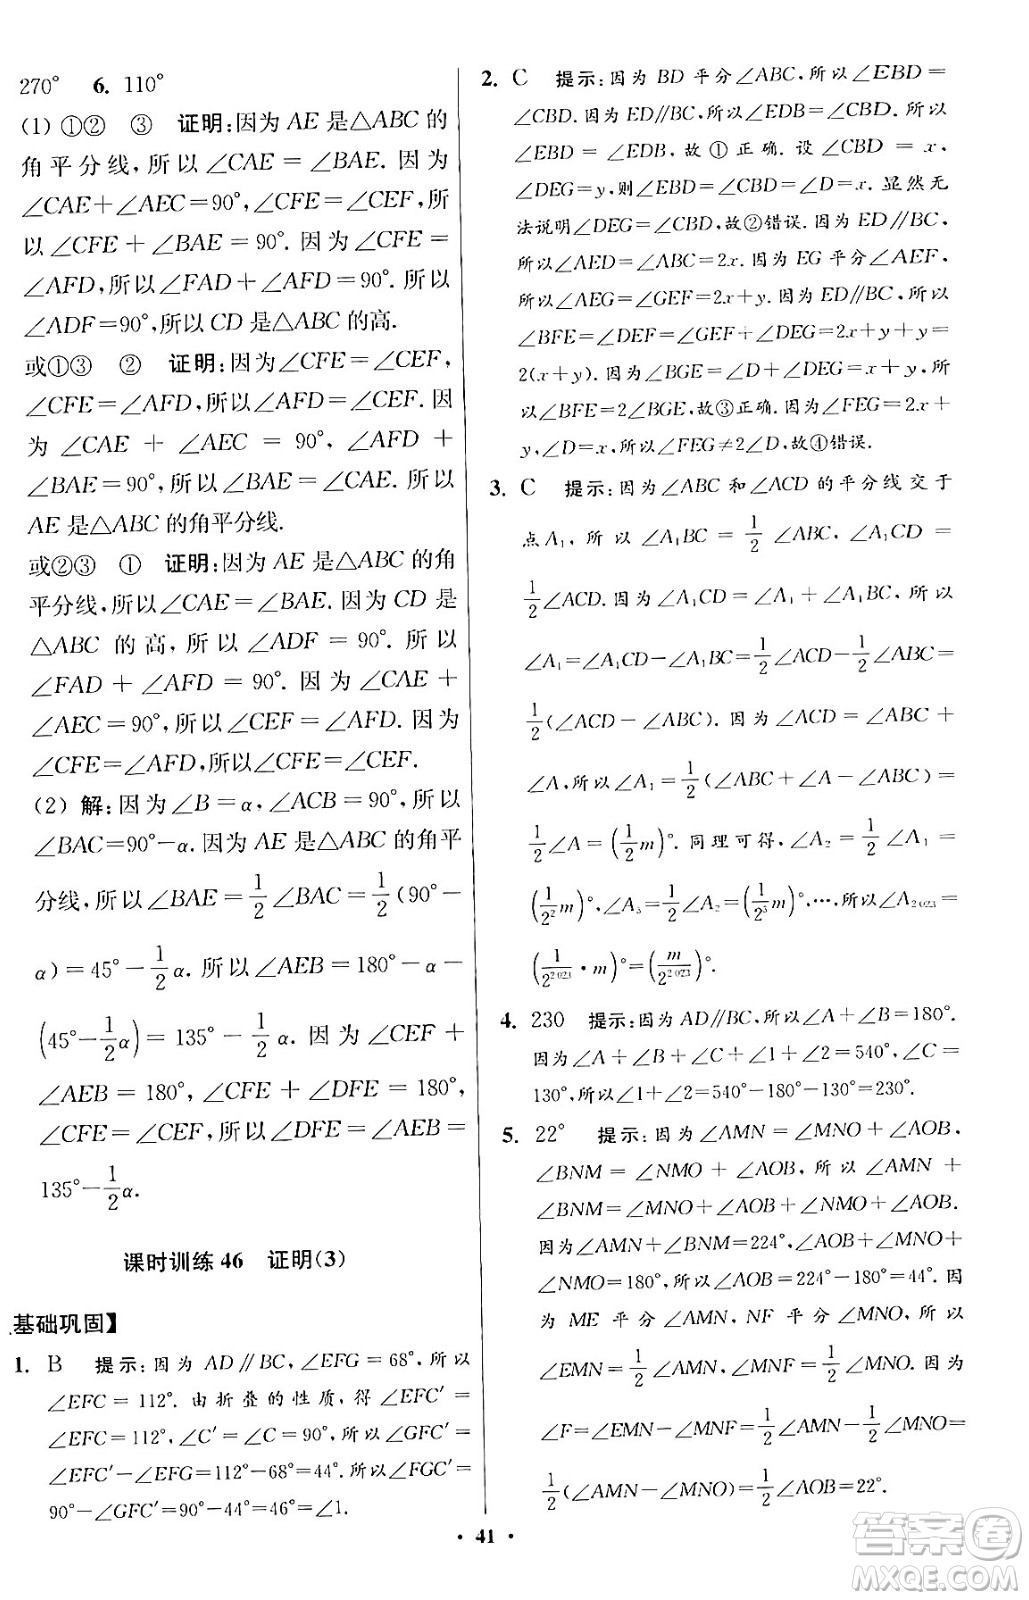 270°  6. 110°
(1) ①②  ③  证明:因为 AE 是△ABC 的
角平分线,所以∠CAE=∠BAE. 因为
∠CAE+∠AEC=90°,∠CFE=∠CEF,所
以∠CFE+∠BAE=90°. 因为∠CFE=
∠AFD,所以∠FAD+∠AFD=90°,所以
∠ADF=90°,所以 CD 是△ABC 的高.
或①③  ②  证明:因为∠CFE=∠CEF,
∠CFE=∠AFD,所以∠CEF=∠AFD. 因
为∠CAE+∠CEF=90°,所以∠AFD+
∠BAE=90°,所以∠CAE=∠BAE,所以
AE 是△ABC 的角平分线.
或②③  ①  证明:因为 AE 是△ABC 的角
平分线,所以∠CAE=∠BAE. 因为 CD 是
△ABC 的高,所以∠ADF=90°,所以
∠FAD+∠AFD=90°. 因为∠CAE+
∠AEC=90°,所以∠CEF=∠AFD. 因为
∠CFE=∠AFD,所以∠CEF=∠CFE.
(2) 解:因为∠B=α,∠ACB=90°,所以
∠BAC=90°-α. 因为 AE 是△ABC 的角平
分线,所以∠BAE=1/2∠BAC=1/2(90°-
α)=45°-1/2α. 所以∠AEB=180°-α-
(45°-1/2α)=135°-1/2α. 因为∠CEF+
∠AEB=180°,∠CFE+∠DFE=180°,
∠CFE=∠CEF,所以∠DFE=∠AEB=
135°-1/2α.
课时训练 46  证明(3)
基础巩固】
1. B  提示:因为 AD∥BC,∠EFG=68°,所以
∠EFC=112°. 由折叠的性质,得∠EFC′=
∠EFC=112°,∠C′=∠C=90°,所以∠GFC′=
∠EFC′-∠EFG=112°-68°=44°. 所以∠FGC′=
90°-∠GFC′=90°-44°=46°=∠1.
2. C  提示:因为 BD 平分∠ABC,所以∠EBD=
∠CBD. 因为 ED∥BC,所以∠EDB=∠CBD,所以
∠EBD=∠EDB,故①正确. 设∠CBD=x,
∠DEG=y,则∠EBD=∠CBD=∠D=x. 显然无
法说明∠DEG=∠CBD,故②错误. 因为 ED∥BC,
所以∠AED=∠ABC=2x. 因为 EG 平分∠AEF,
所以∠AEG=∠GEF=2x+y. 因为 ED∥BC,所以
∠BFE=∠DEF=∠GEF+∠DEG=2x+y+y=
2(x+y). 因为∠BGE=∠D+∠DEG=x+y,所
以∠BFE=2∠BGE,故③正确. 因为∠FEG=2x+
y,∠D=x,所以∠FEG≠2∠D,故④错误.
3. C  提示:因为∠ABC 和∠ACD 的平分线交于
点 A₁,所以∠A₁BC=1/2∠ABC,∠A₁CD=
1/2∠ACD. 因为∠A₁CD=∠A₁+∠A₁BC,所以
∠A₁=∠A₁CD-∠A₁BC=1/2∠ACD-1/2∠ABC=
1/2(∠ACD-∠ABC). 因为∠ACD=∠ABC+
∠A,所以∠A₁=1/2(∠ABC+∠A-∠ABC)=
1/2∠A=(1/2m)°. 同理可得,∠A₂=1/2∠A₁=
(1/2²m)°,∠A₃=1/2∠A₂=(1/2³m)°,…,所以∠A₂₀₂₃=
(1/2²⁰²³·m)°=(m/2²⁰²³)°.
4. 230  提示:因为 AD∥BC,所以∠A+∠B=180°.
因为∠A+∠B+∠C+∠1+∠2=540°,∠C=
130°,所以∠1+∠2=540°-180°-130°=230°.
5. 22°  提示:因为∠AMN=∠MNO+∠AOB,
∠BNM=∠NMO+∠AOB,所以∠AMN+
∠BNM=∠MNO+∠AOB+∠NMO+∠AOB.
因为∠AMN+∠BNM=224°,∠MNO+∠AOB+
∠NMO=180°,所以∠AOB=224°-180°=44°. 因
为 ME 平分∠AMN, NF 平分∠MNO,所以
∠EMN=1/2∠AMN,∠MNF=1/2∠MNO,所以
∠F=∠EMN-∠MNF=1/2∠AMN-1/2∠MNO=
1/2(∠AMN-∠MNO)=1/2∠AOB=22°.
• 41 •
答案圈
MXQE.COM